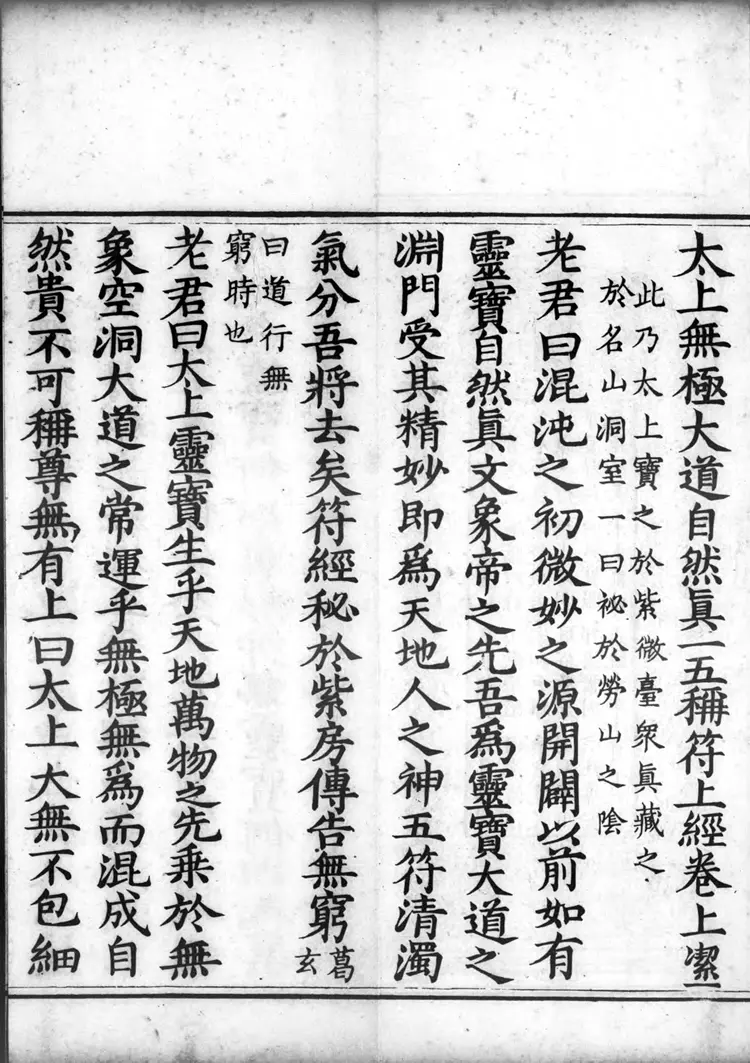 太上無極大道自然眞一五稱符上經卷上 潔一
此乃太上寶之於紫微臺衆眞藏之
於名山洞室一曰祕於勞山之陰
老君曰混沌之初微妙之源開闢以前如有
靈寶自然眞文象帝之先吾爲靈寶大道之
淵門受其精妙即爲天地人之神五符清濁
氣分吾將去矣符經秘於紫房傳告無窮葛玄
曰道行無
窮時也
老君曰太上靈寶生乎天地萬物之先乘於無
象空洞大道之常運乎無極無爲而混成自
然貴不可稱尊無有上曰太上大無不包細